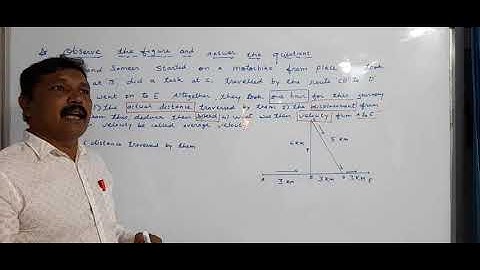 Observe the figure and answer the questions
and Sameer started on a motorbike from place
at B, did a task at C, travelled by the route CD to D
went on to E. Altogether they took one hour for this journey
the actual distance traversed by them 2) the displacement from
from this, deduce their speed 4) what was their velocity from A to E
velocity be called average velocity
distance traversed by them
4 km
5 km
A
B
D
E
3 km
3 km
3 km